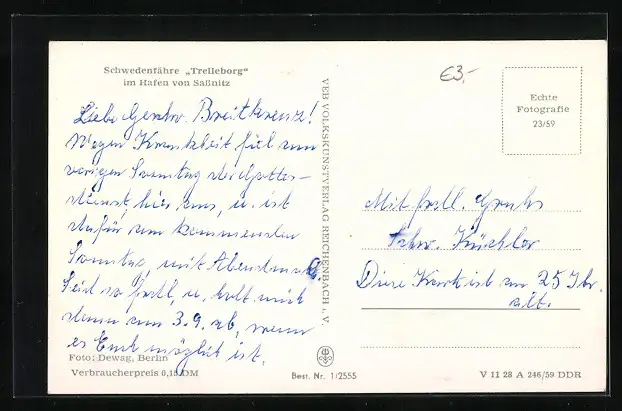 Schwedenfähre „Trelleborg“
im Hafen von Saßnitz
Liebe Geschw. Breitkreuz!
Wegen Krankheit fiel am
vorigen Sonntag der Gottes-
dienst hier aus, u. ist
dafür am kommenden
Sonntag mit Abendmahl.
Seid so frdl. u. holt mich
dann am 3.9. ab, wenn
es Euch möglich ist.
Foto: Dewag, Berlin
Verbraucherpreis 0,15 DM
VEB VOLKSKUNSTVERLAG REICHENBACH i. V.
Best. Nr. 1/2555
€3,-
Echte
Fotografie
23/59
Mit frdl. Gruß
Schw. Küchler
Diese Karte ist am 25 Jhr.
alt.
V 11 28 A 246/59 DDR